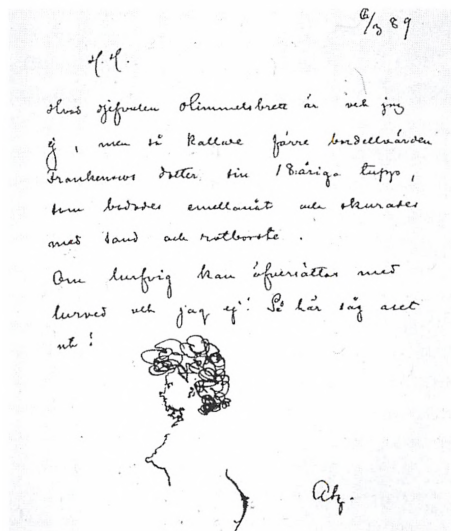 6/3 89
H. H.
Hvad djefvulen Olimmelsbrett är vet jag
ej, men så kallade förre bordellvärden
Frankensons dotter sin 18åriga tupps,
som badades emellanåt och skurades
med sand och rotborste.
Om lurfvig kan öfversättas med
lurved vet jag ej! Så här såg aset
ut!